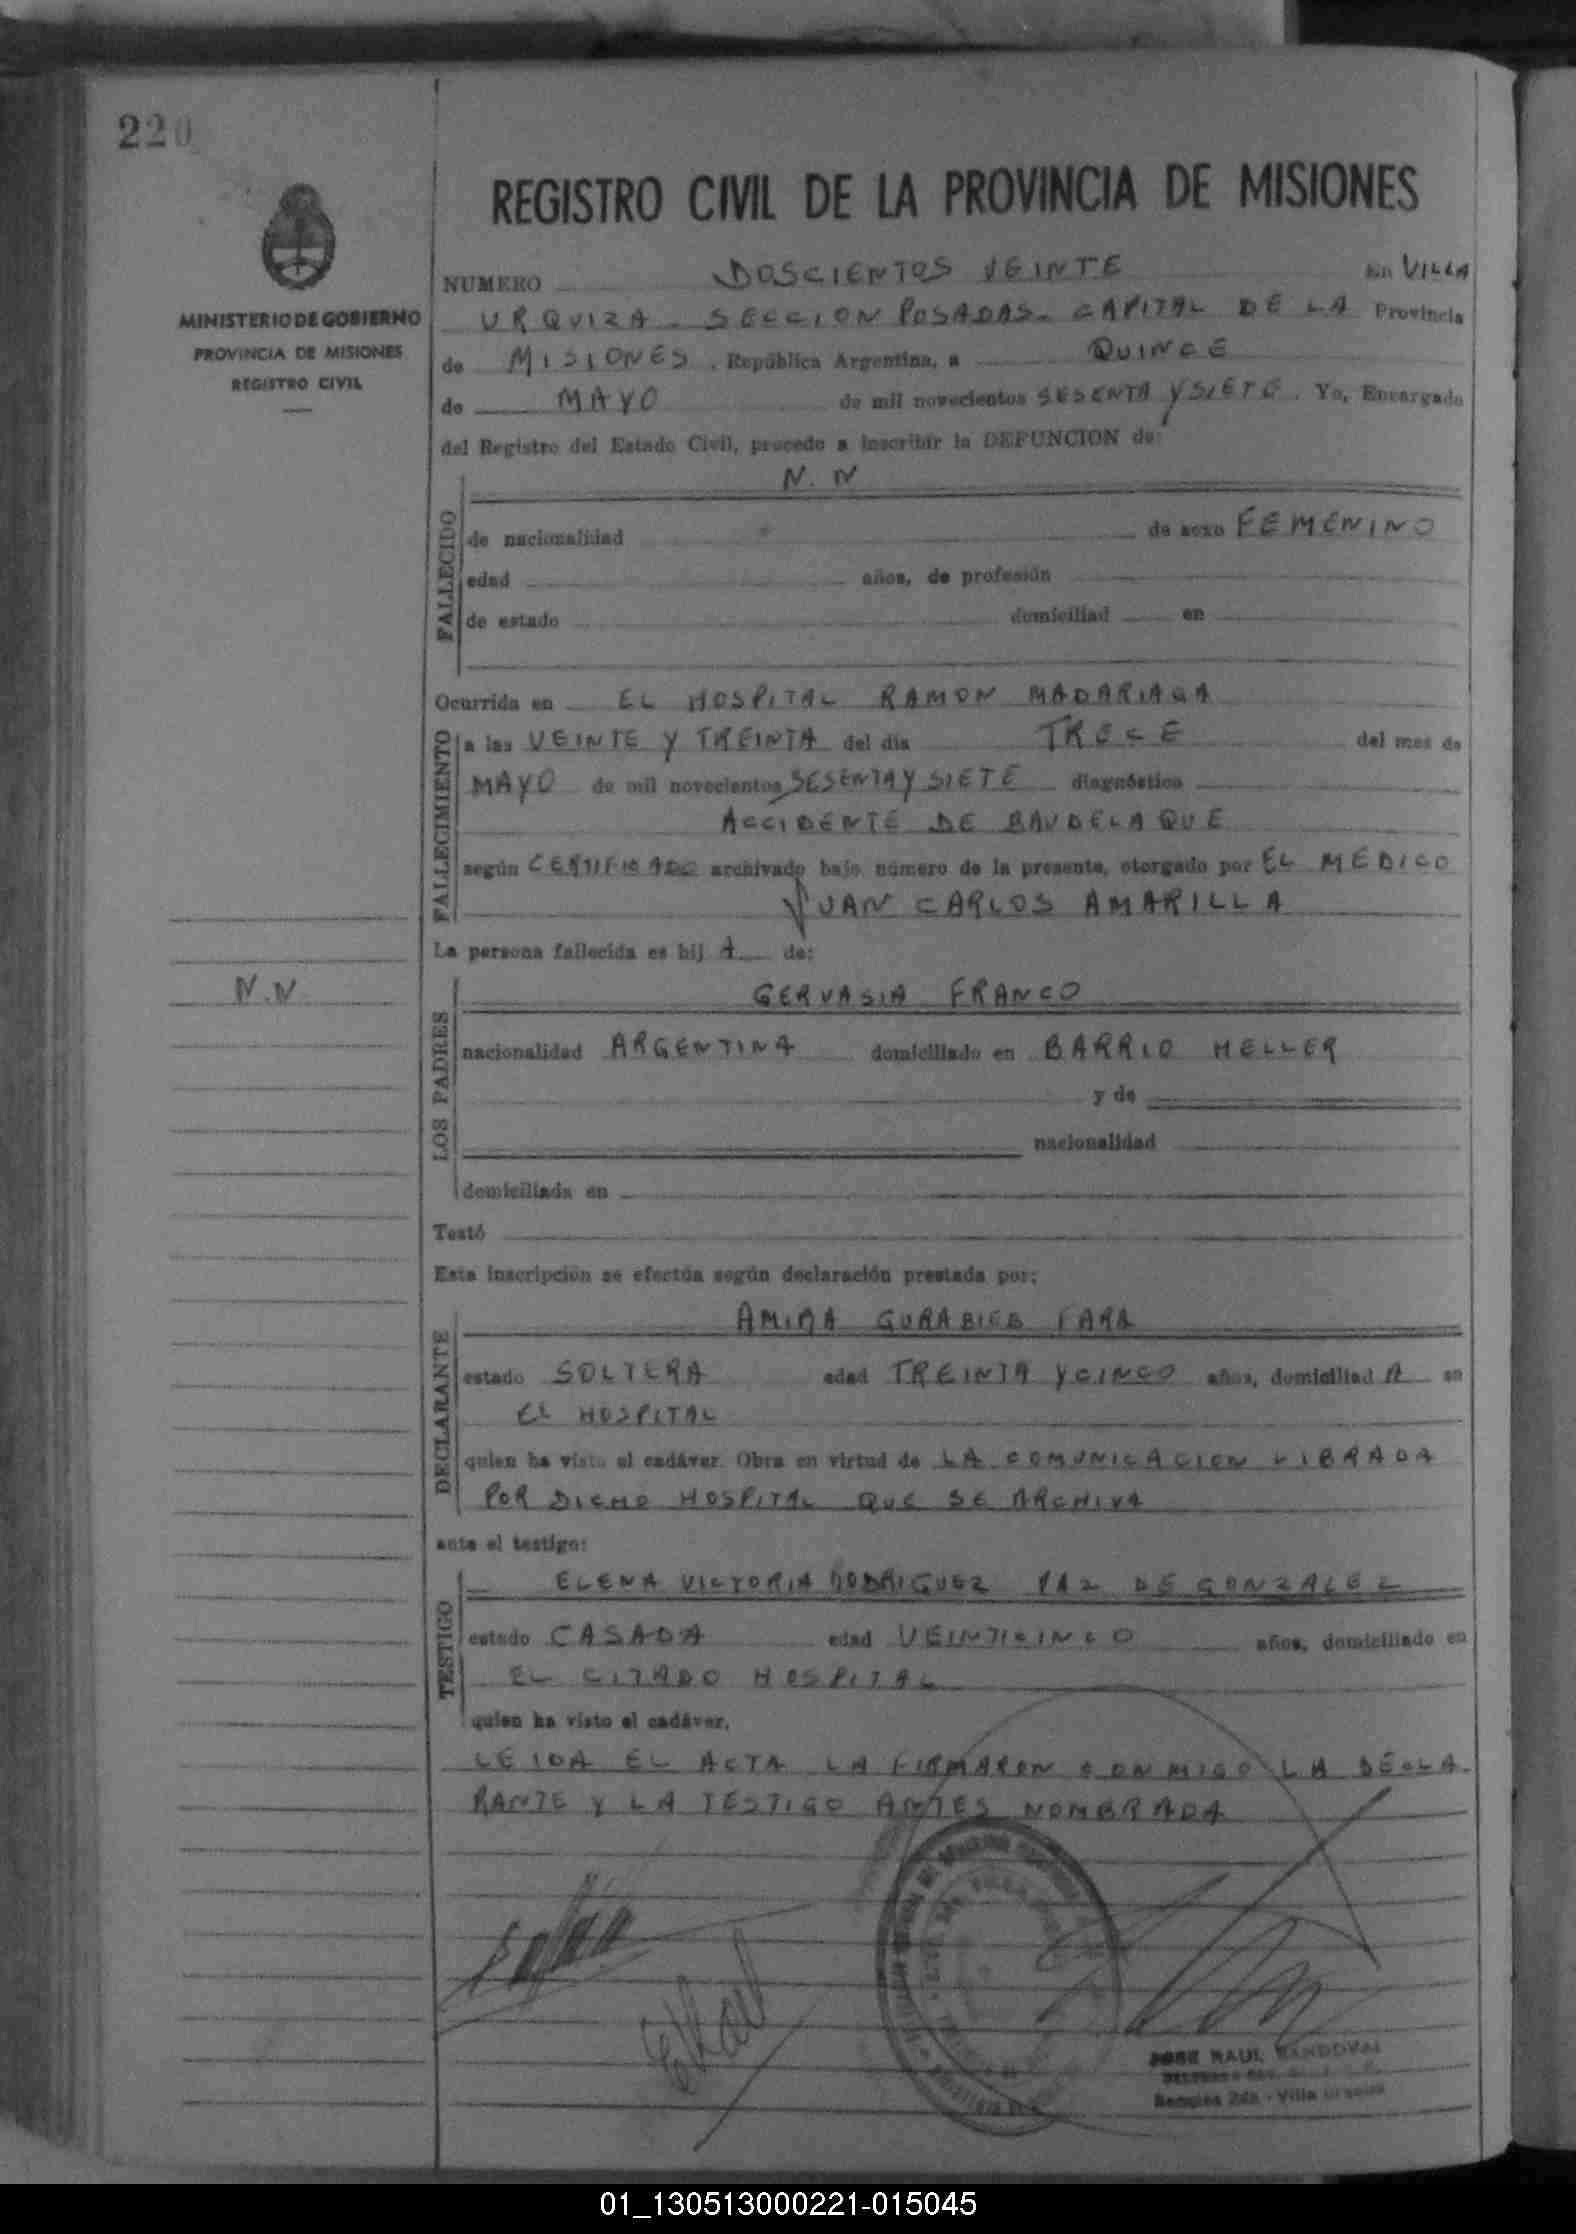 220
REGISTRO CIVIL DE LA PROVINCIA DE MISIONES
MINISTERIO DE GOBIERNO
PROVINCIA DE MISIONES
REGISTRO CIVIL
NUMERO DOSCIENTOS VEINTE En VILLA
URQUIZA - SECCION POSADAS - CAPITAL DE LA Provincia
de MISIONES, República Argentina, a QUINCE
de MAYO de mil novecientos SESENTA Y SIETE. Yo, Encargado
del Registro del Estado Civil, procedo a inscribir la DEFUNCION de:
FALLECIDO
N. N
de nacionalidad de sexo FEMENINO
edad años, de profesión
de estado domiciliad en
Ocurrida en EL HOSPITAL RAMON MADARIAGA
FALLECIMIENTO
a las VEINTE Y TREINTA del día TRECE del mes de
MAYO de mil novecientos SESENTA Y SIETE diagnóstico
ACCIDENTE DE BAUDELAQUE
según CERTIFICADO archivado bajo número de la presente, otorgado por EL MEDICO
JUAN CARLOS AMARILLA
La persona fallecida es hij A de:
N.N
LOS PADRES
GERVASIA FRANCO
nacionalidad ARGENTINA domiciliado en BARRIO HELLER
y de
nacionalidad
domiciliada en
Testó
Esta inscripción se efectúa según declaración prestada por:
DECLARANTE
AMIRA GURABIEB FARA
estado SOLTERA edad TREINTA Y CINCO años, domiciliad A en
EL HOSPITAL
quien ha visto el cadáver. Obra en virtud de LA COMUNICACION LIBRADA
POR DICHO HOSPITAL QUE SE ARCHIVA
ante el testigo:
TESTIGO
ELENA VICTORIA RODRIGUEZ PAZ DE GONZALEZ
estado CASADA edad VEINTICINCO años, domiciliado en
EL CITADO HOSPITAL
quien ha visto el cadáver.
LEIDA EL ACTA LA FIRMARON CONMIGO LA DECLA-
RANTE Y LA TESTIGO ANTES NOMBRADA
JOSE RAUL SANDOVAL
Sección 2da - Villa Urquiza
01_130513000221-015045